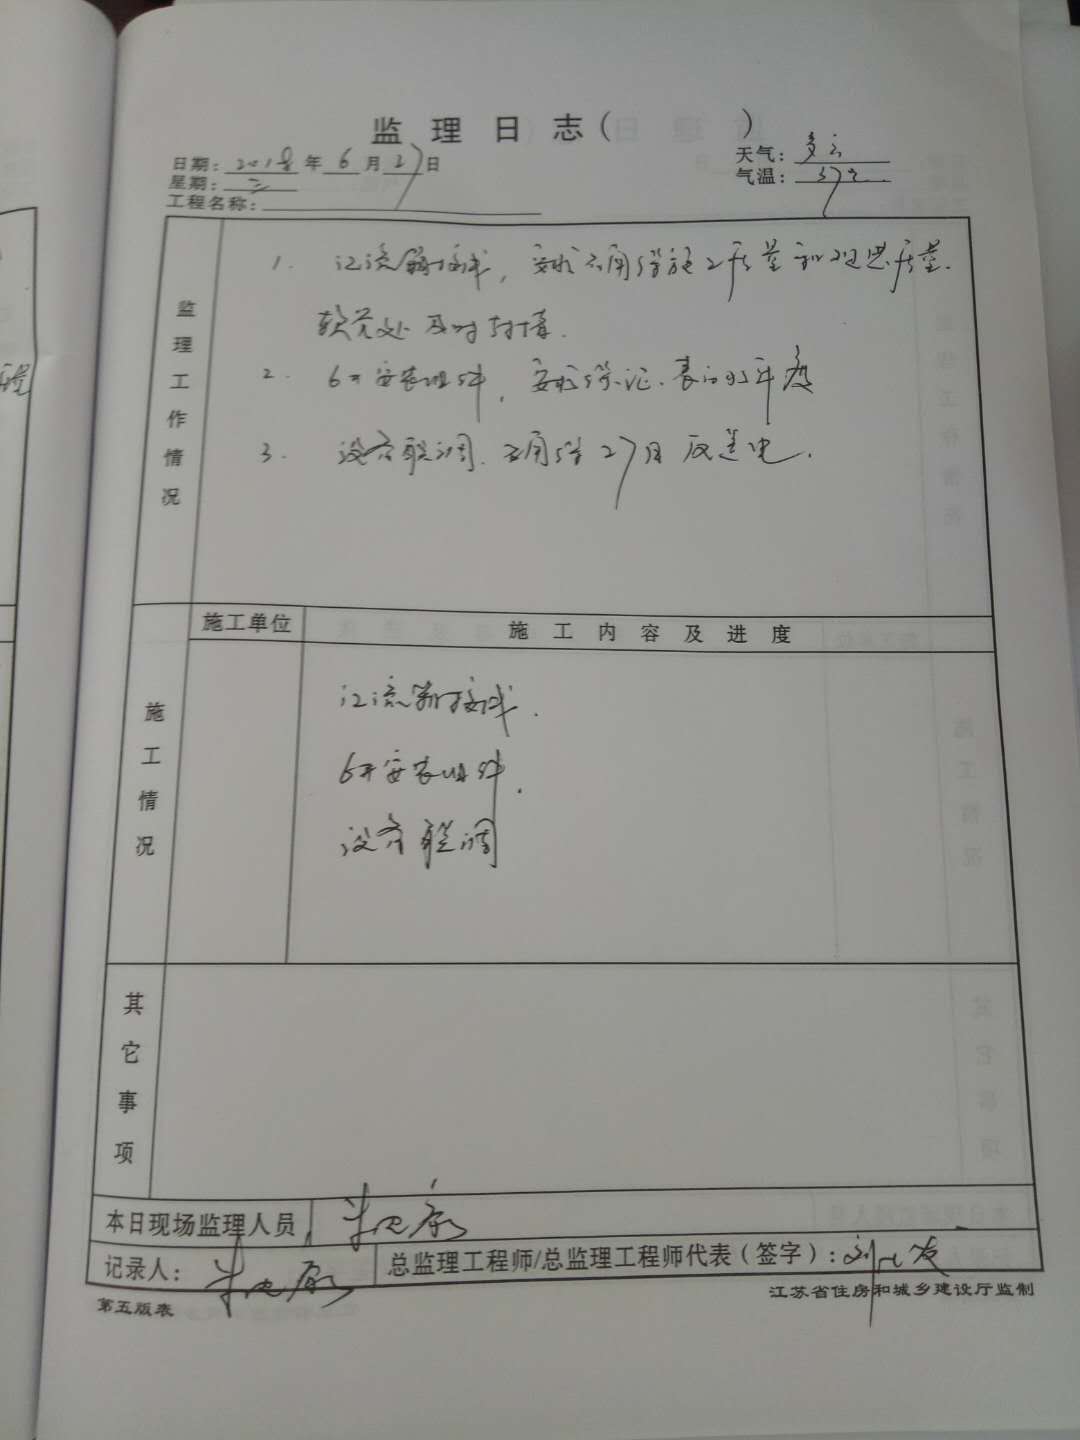 监 理 日 志（ ）
日期：2018年6月27日
天气：多云
星期：三
气温：37℃
工程名称：
监理工作情况
1. 汇流箱接线，要求 确保施工质量和观感质量.
较差处及时封堵.
2. 6# 安装组件，要求保证表面的平度
3. 设备联调. 确保27日反送电.
施工单位
施 工 内 容 及 进 度
施工情况
汇流箱接线.
6#安装组件.
设备联调
其它事项
本日现场监理人员
记录人：
总监理工程师/总监理工程师代表（签字）：刘
第五版表
江苏省住房和城乡建设厅监制